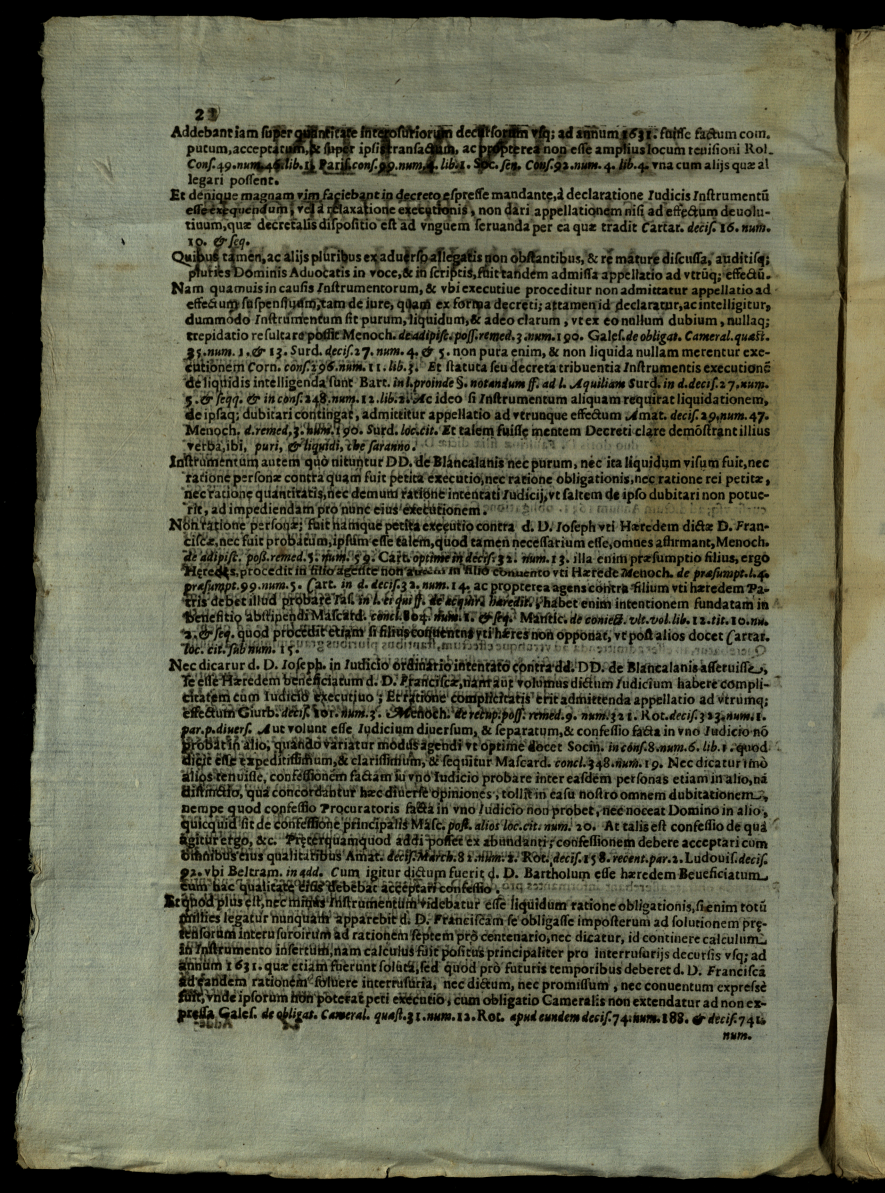 2
Addebant iam super quantitate interusuriorum decursorum vsq; ad annum 1631. fuisse factum com-
putum, acceptatum, & super ipsis transactum, ac propterea non esse amplius locum reuisioni Rol.
Cons. 49. num. 46. lib. 1. Paris. cons. 99. num. 4. lib. 1. Soc. sen. Cons. 92. num. 4. lib. 4. vna cum alijs quæ al
legari possent.
Et denique magnam vim faciebant in decreto espresse mandante, à declaratione Iudicis Instrumentū
esse exequendum, vel à relaxatione executionis, non dari appellationem nisi ad effectum deuolu-
tiuum, quæ decretalis dispositio est ad vnguem seruanda per ea quæ tradit Cartar. decis. 16. num.
10. & seq.
Quibus tamen, ac alijs pluribus ex aduerso allegatis non obstantibus, & re mature discussa, auditisq;
pluries Dominis Aduocatis in voce, & in scriptis, fuit tandem admissa appellatio ad vtrūq; effectū.
Nam quamuis in causis Instrumentorum, & vbi executiue proceditur non admittatur appellatio ad
effectum suspensiuum, tam de iure, quam ex forma decreti; attamen id declaratur, ac intelligitur,
dummodo Instrumentum sit purum, liquidum, & adeo clarum, vt ex eo nullum dubium, nullaq;
trepidatio resultare possit Menoch. de adipisc. poss. remed. 3. num. 190. Gales. de obligat. Cameral. quæst.
35. num. 1. & 13. Surd. decis. 27. num. 4. & 5. non pura enim, & non liquida nullam merentur exe-
cutionem Corn. cons. 296. num. 11. lib. 3. Et statuta seu decreta tribuentia Instrumentis executionē
de liquidis intelligenda sunt Bart. in l. proinde §. notandum ff. ad l. Aquiliam Surd. in d. decis. 27. num.
5. & seqq. & in cons. 248. num. 12. lib. 2. Ac ideo si Instrumentum aliquam requirat liquidationem,
de ipsaq; dubitari contingat, admittitur appellatio ad vtrunque effectum Amat. decis. 29. num. 47.
Menoch. d. remed. 3. num. 190. Surd. loc. cit. Et talem fuisse mentem Decreti clare demōstrant illius
verba, ibi, puri, & liquidi, che saranno.
Instrumentum autem quò nituntur DD. de Blancalanis nec purum, nec ita liquidum visum fuit, nec
ratione personæ contra quam fuit petita executio, nec ratione obligationis, nec ratione rei petitæ,
nec ratione quantitatis, nec demum ratione intentati Iudicij, vt saltem de ipso dubitari non potue-
rit, ad impediendam pro nunc eius executionem.
Non ratione personæ; fuit namque petita executio contra d. D. Ioseph vti Hæredem dictæ D. Fran-
ciscæ, nec fuit probatum, ipsum esse talem, quod tamen necessarium esse, omnes affirmant, Menoch.
de adipisc. poss. remed. 5. num. 59. Cart. optime in decis. 32. num. 13. illa enim præsumptio filius, ergo
Heredes, procedit in filio agente non autem in filio conuento vti Hærede Menoch. de præsumpt. l. 4.
præsumpt. 99. num. 5. Cart. in d. decis. 32. num. 14. ac propterea agens contra filium vti hæredem Pa-
tris debet illud probare Ias. in l. et qui ff. de acquir. hæredit., habet enim intentionem fundatam in
benefitio abstinendi Mascard. concl. 804. num. 1. & seq. Mantic. de coniect. vlt. vol. lib. 12. tit. 10. nu.
2. & seq. quod procedit etiam si filius conuentus vti hæres non opponat, vt post alios docet Cartar.
loc. cit. sub num. 15.
Nec dicatur d. D. Ioseph. in Iudicio ordinario intentato contra dd. DD. de Blancalanis asseruisse,
se esse Hæredem beneficiatum d. D. Franciscæ, nam aut volumus dictum Iudicium habere compli-
citatem cum Iudicio executiuo; Et ratione complicitatis erit admittenda appellatio ad vtrumq;
effectum Giurb. decis. 101. num. 3. Menoch. de recup. poss. remed. 9. num. 321. Rot. decis. 323. num. 1.
par. p. diuers. Aut volunt esse Iudicium diuersum, & separatum, & confessio facta in vno Iudicio nō
probat in alio, quando variatur modus agendi vt optime docet Socin. in cons. 8. num. 6. lib. 1. quod
dicit esse expeditissimum, & clarissimum, & sequitur Mascard. concl. 348. num. 19. Nec dicatur imò
alios tenuisse, confessionem factam in vno Iudicio probare inter easdem personas etiam in alio, nā
distinctio, qua concordantur hæc diuerse opiniones, tollit in casu nostro omnem dubitationem,
nempe quod confessio Procuratoris facta in vno Iudicio non probet, nec noceat Domino in alio,
quicquid sit de confessione principalis Masc. post. alios loc. cit. num. 20. At talis est confessio de qua
agitur ergo, &c. Pręterquamquod addi posset ex abundanti; confessionem debere acceptari cum
omnibus eius qualitatibus Amat. decis. March. 82. num. 2. Rot. decis. 158. recent. par. 2. Ludouis. decis.
92. vbi Beltram. in add. Cum igitur dictum fuerit d. D. Bartholum esse hæredem Beueficiatum
cum hac qualitate eius debebat acceptari confessio.
Et quod plus est, nec minus Instrumentum videbatur esse liquidum ratione obligationis, si enim totū
millies legatur nunquam apparebit d. D. Franciscam se obligasse imposterum ad solutionem pre-
tensorum interusuroirum ad rationem septem pro centenario, nec dicatur, id continere calculum
in Instrumento insertum, nam calculus fuit positus principaliter pro interrusurijs decursis vsq; ad
annum 1631. quæ etiam fuerunt soluta, sed quod pro futuris temporibus deberet d. D. Franciscā
ad eandem rationem soluere interrusuria, nec dictum, nec promissum, nec conuentum expresse
fuit, vnde ipsorum non poterat peti executio, cum obligatio Cameralis non extendatur ad non ex-
pressa Gales. de obligat. Cameral. quæst. 31. num. 12. Rot. apud eundem decis. 74. num. 188. & decis. 741.
num.